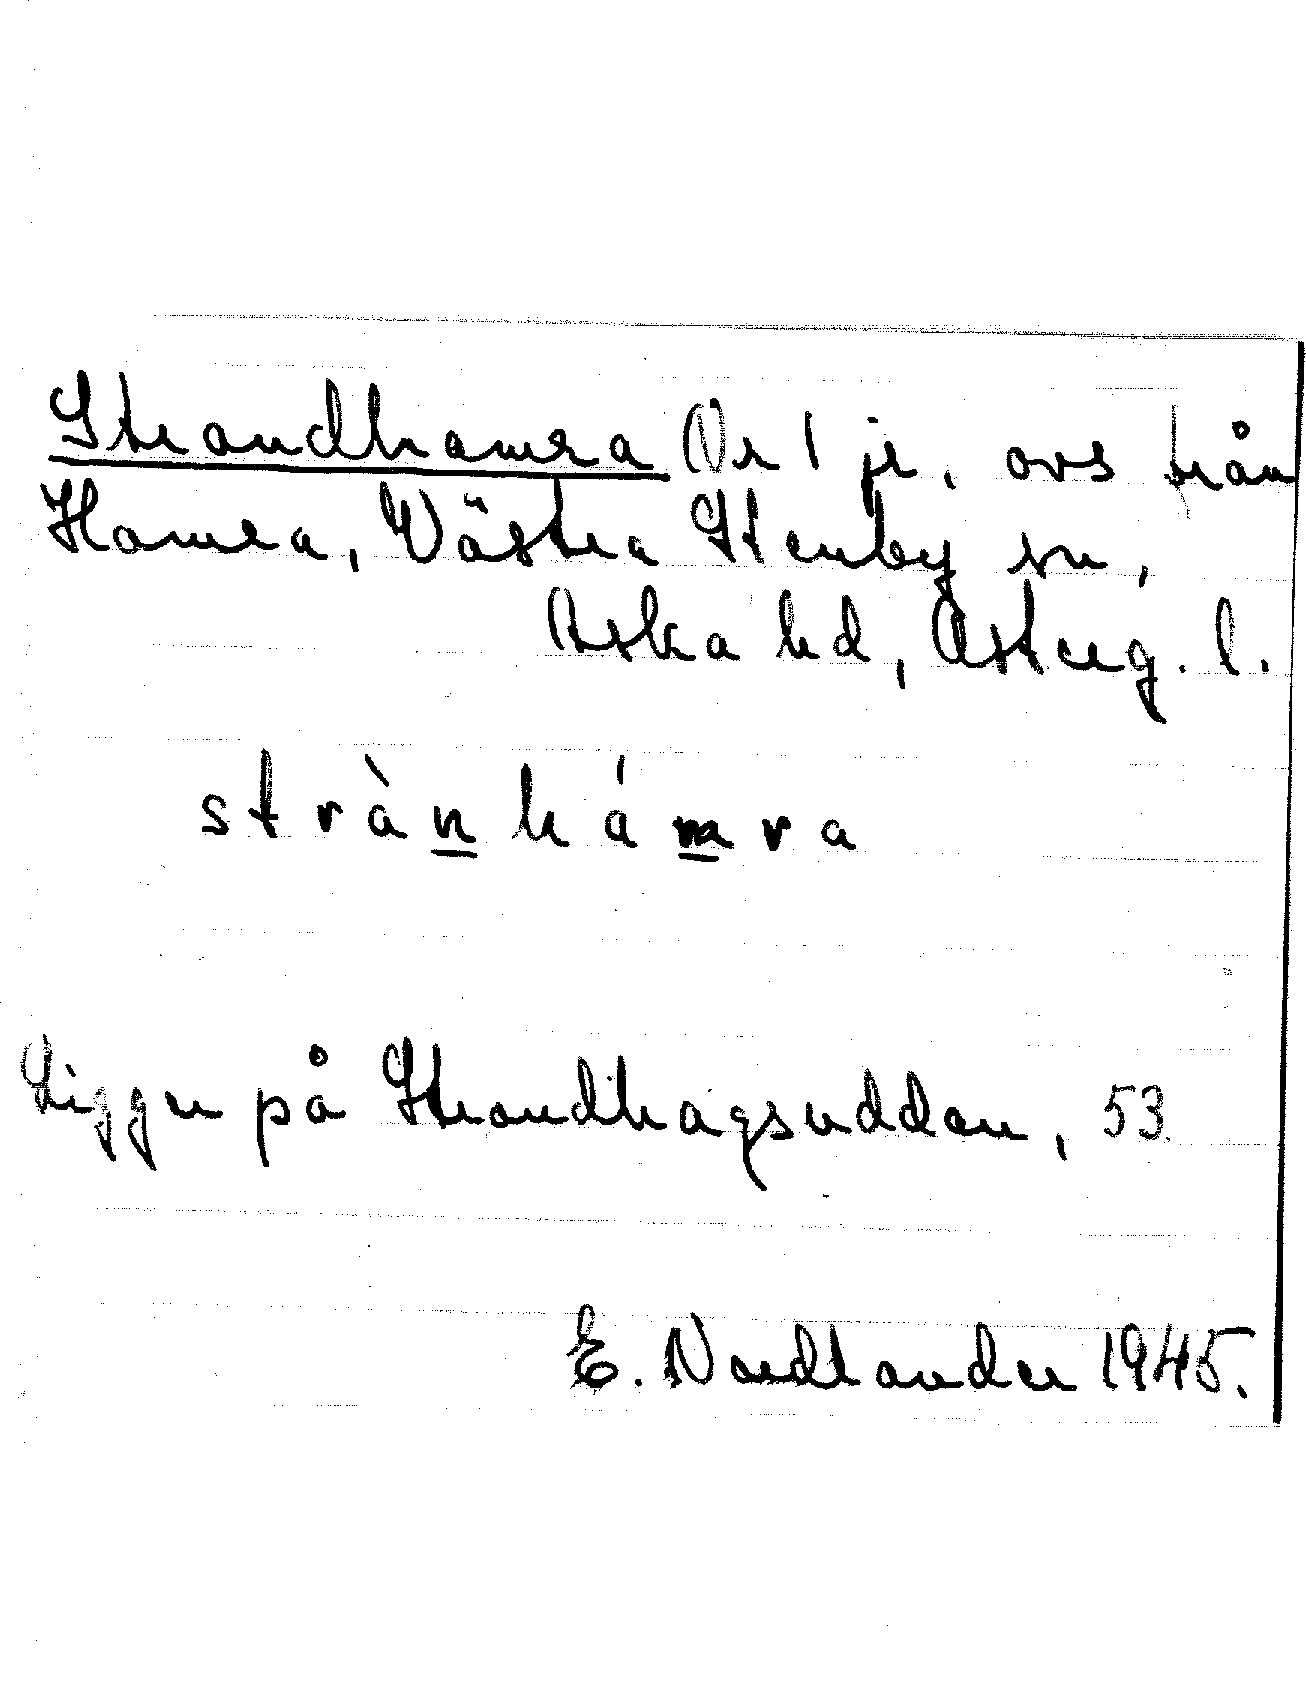 Strandhamra Nr 1 je, avs från
Hamra, Västra Stenby sn,
Aska hd, Österg. l.
strànhámra
Ligger på Strandhagsudden, 53.
E. Nordlander 1945.